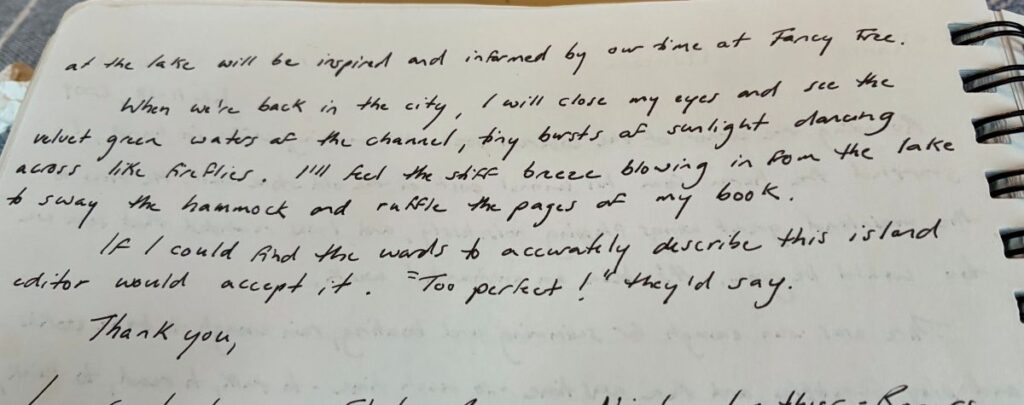 at the lake will be inspired and informed by our time at Fancy Free.
When we're back in the city, I will close my eyes and see the
velvet green waters of the channel, tiny bursts of sunlight dancing
across like fireflies. I'll feel the stiff breeze blowing in from the lake
to sway the hammock and ruffle the pages of my book.
If I could find the words to accurately describe this island
editor would accept it. "Too perfect!" they'd say.
Thank you,